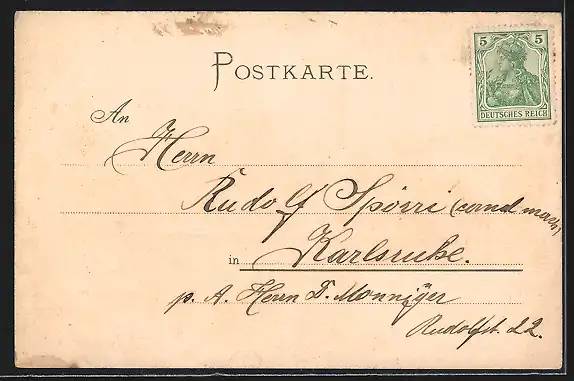 POSTKARTE.
5 5
DEUTSCHES REICH
An
Herrn
Rudolf Spörri (cand mach)
in Karlsruhe.
p. A. Herrn D. Monniger
Rudolfstr. 22.